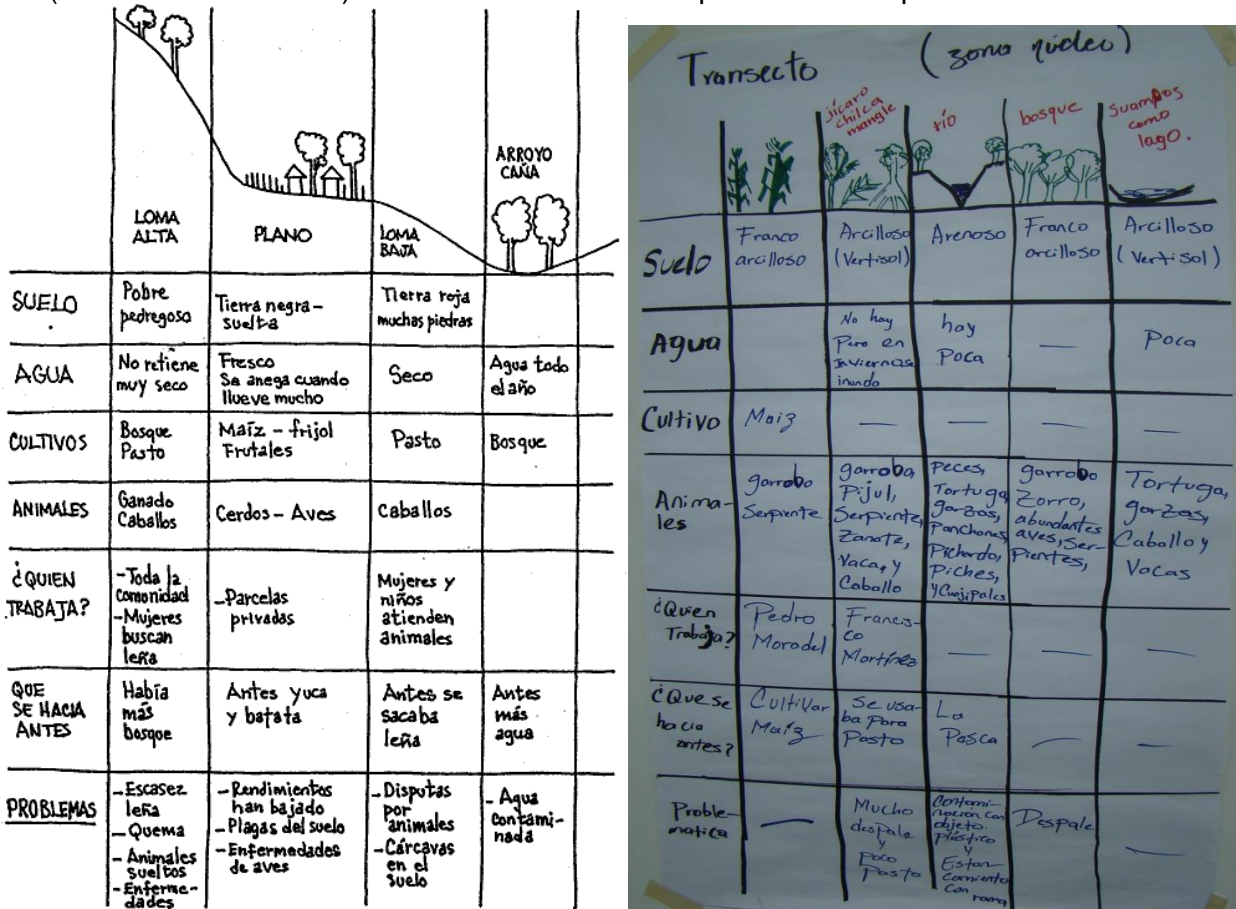 LOMA
ALTA
PLANO
LOMA
BAJA
ARROYO
CAÑA
SUELO
Pobre
pedregoso
Tierra negra-
suelta
Tierra roja
muchas piedras
AGUA
No retiene
muy seco
Fresco
Se anega cuando
llueve mucho
Seco
Agua todo
el año
CULTIVOS
Bosque
Pasto
Maíz - frijol
Frutales
Pasto
Bosque
ANIMALES
Ganado
Caballos
Cerdos - Aves
Caballos
¿QUIEN
TRABAJA?
-Toda la
comunidad
-Mujeres
buscan
leña
-Parcelas
privadas
Mujeres y
niños
atienden
animales
QUE
SE HACIA
ANTES
Había
más
bosque
Antes yuca
y batata
Antes se
sacaba
leña
Antes
más
agua
PROBLEMAS
-Escasez
leña
-Quema
-Animales
sueltos
-Enferme-
dades
-Rendimientos
han bajado
-Plagas del suelo
-Enfermedades
de aves
-Disputas
por
animales
-Cárcavas
en el
suelo
-Agua
contami-
nada
Transecto (zona núcleo)
jícaro
chilca
mangle
río
bosque
suampos
como
lago.
Suelo
Franco
arcilloso
Arcilloso
(Vertisol)
Arenoso
Franco
arcilloso
Arcilloso
(Vertisol)
Agua
No hay
Pero en
Invierno se
inunda
hay
Poca
—
Poca
Cultivo
Maiz
—
—
—
—
Anima-
les
garrobo
Serpiente
garrobo,
Pijul,
Serpiente,
Zanate,
Vaca, y
Caballo
Peces,
Tortuga,
garzas,
Panchones,
Pichardo,
Piches,
y Cuajipales
garrobo
Zorro,
abundantes
aves, Ser-
pientes,
Tortuga,
garzas,
Caballo y
Vacas
¿Quien
Trabaja?
Pedro
Moradel
Francis-
co
Martínez
—
—
—
¿Que se
hacia
antes?
Cultivar
Maíz
Se usa-
ba para
Pasto
La
Pesca
—
—
Proble-
matica
—
Mucho
despale
y
Poco
Pasto
Contami-
nacion con
objeto
plástico
y
Estan-
camiento
con rama
Despale
—